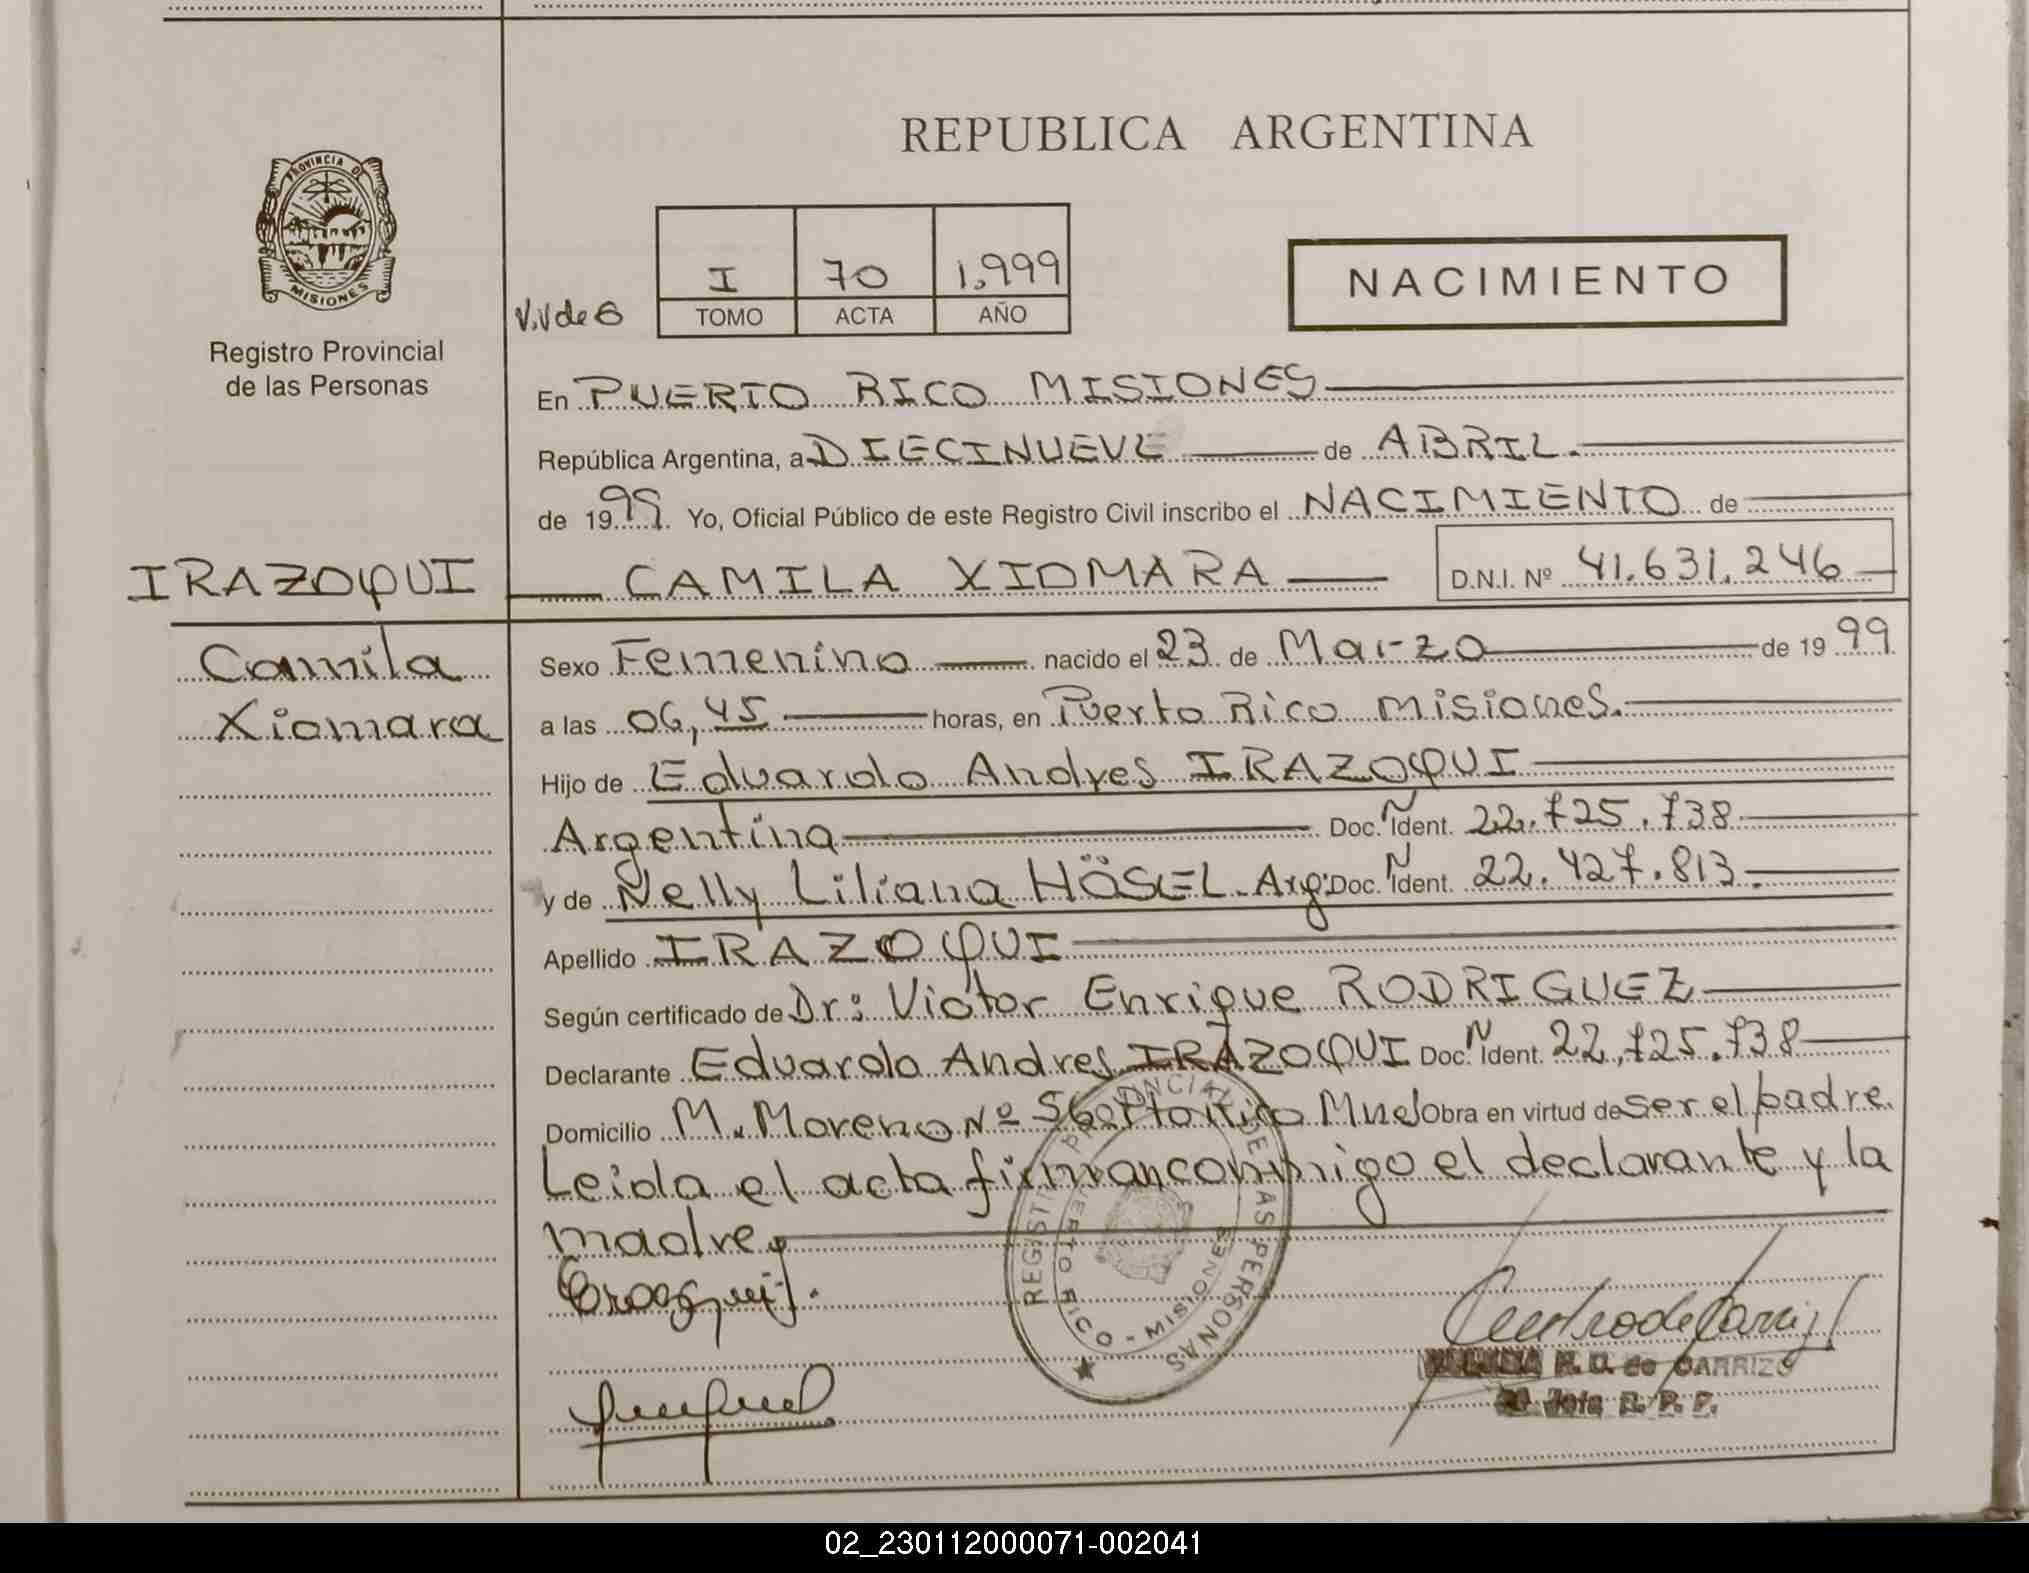 REPUBLICA ARGENTINA
PROVINCIA DE
MISIONES
Registro Provincial
de las Personas
V.V de 6
I 70 1,999
TOMO ACTA AÑO
NACIMIENTO
En PUERTO RICO MISIONES
República Argentina, a DIECINUEVE de ABRIL.
de 1999. Yo, Oficial Público de este Registro Civil inscribo el NACIMIENTO de
IRAZOQUI CAMILA XIOMARA D.N.I. Nº 41.631.246
Camila
Xiomara
Sexo Femenino nacido el 23 de Marzo de 1999
a las 06,45 horas, en Puerto Rico Misiones.
Hijo de Eduardo Andres IRAZOQUI
Argentina Doc. N Ident. 22.725.738
y de Nelly Liliana HÖSEL Arg. Doc. N Ident. 22.427.813.
Apellido IRAZOQUI
Según certificado de Dr: Victor Enrique RODRIGUEZ
Declarante Eduardo Andres IRAZOQUI Doc. N Ident. 22.725.738
Domicilio M. Moreno Nº Pto Rico Mnes Obra en virtud de ser el padre.
Leida el acta firman conmigo el declarante y la
madre
REGISTRO PROVINCIAL DE LAS PERSONAS
PUERTO RICO - MISIONES
de CARRIZO
Jefa R. P. P.
02_230112000071-002041